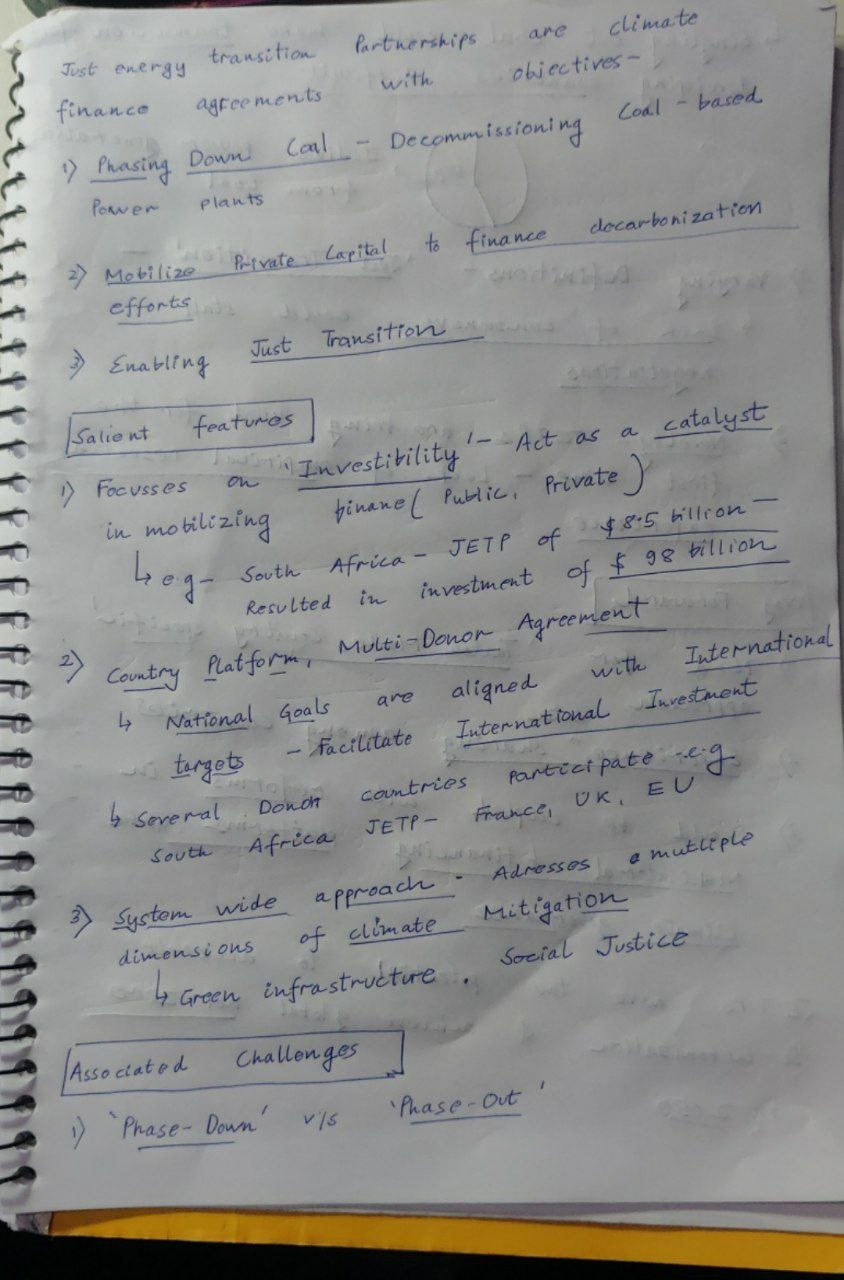 Just energy transition Partnerships are climate
finance agreements with objectives-
1) Phasing Down Coal - Decommissioning Coal-based
Power plants
2) Mobilize Private Capital to finance decarbonization
efforts
3) Enabling Just Transition
Salient features
1) Focusses on 'Investibility' - Act as a catalyst
in mobilizing finane (Public, Private)
↳ e.g- South Africa - JETP of $8.5 billion -
Resulted in investment of $ 98 billion
2) Country Platform, Multi-Donor Agreement
↳ National Goals are aligned with International
targets - Facilitate International Investment
↳ Several Donor countries participate e.g
South Africa JETP - France, UK, EU
3) System wide approach - Adresses a mutliple
dimensions of climate Mitigation
↳ Green infrastructure. Social Justice
Associated Challenges
1) 'Phase-Down' v/s 'Phase-Out'